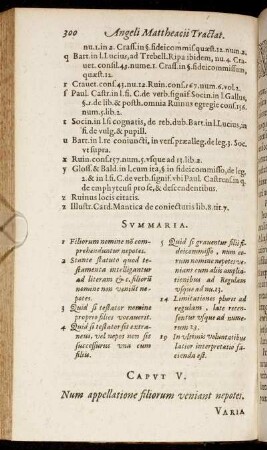 300 Angeli Matthæacii Tractat.
nu.1. in 2. Crass. in §. fideicommiss. quæst. 12. num. 2.
q Bart. in l. Lucius, ad Trebell. Ripa ibidem, nu. 4. Crauet. consil. 45. nume. 1. Crass. in §. fideicommissum, quæst. 12.
r Crauet. cons. 43. nu. 12. Ruin. cons. 167. num. 6. vol. 2.
s Paul. Castr. in l. s. C. de verb. signif. Socin. in l. Gallus, §. 1. de lib. & posth. omnia Ruinus egregie cons. 136. num. 5. lib. 2.
t Socin. in l. si cognatis, de reb. dub. Bart. in l. Lucius, in fi. de vulg. & pupill.
u Bart. in l. re coniuncti, in vers. præalleg. de leg. 3. Soc. vt supra.
x Ruin. cons. 157. num. 5. vsque ad 15. lib. 2.
y Gloss. & Bald. in l. cum ita, § in fideicommisso, de leg. 2. & in l. s. C. de verb. signif. vbi Paul. Castrus. in q. de emphyteusi pro se, & descendentibus.
z Ruinus locis citatis.
2 Illustr. Card. Mantica de coniecturis lib. 8. tit. 7.
SVMMARIA.
1 Filiorum nomine nō comprehenduntur nepotes.
2 Stante statuto quod testamenta intelligantur ad literam &c. filiorū nomine non veniūt nepotes.
3 Quid si testator nomine proprio filios vocauerit.
4 Quid si testator sit extraneus, vel nepos non sit successurus vna cum filiis.
5 Quid si grauentur filii fideicommisso, num eorum nomine nepotes veniant cum aliis ampliationibus ad Regulam vsque ad nu. 13.
14 Limitationes plures ad regulam, late recensentur vsque ad numerum 23.
19 In vltimis voluntatibus latior interpretatio facienda est.
CAPVT V.
Num appellatione filiorum veniant nepotes.
VARIA